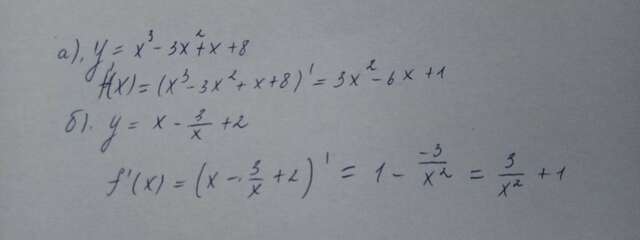 а). y = x³ - 3x² + x + 8
f'(x) = (x³ - 3x² + x + 8)' = 3x² - 6x + 1
б). y = x - 3/x + 2
f'(x) = (x - 3/x + 2)' = 1 - -3/x² = 3/x² + 1